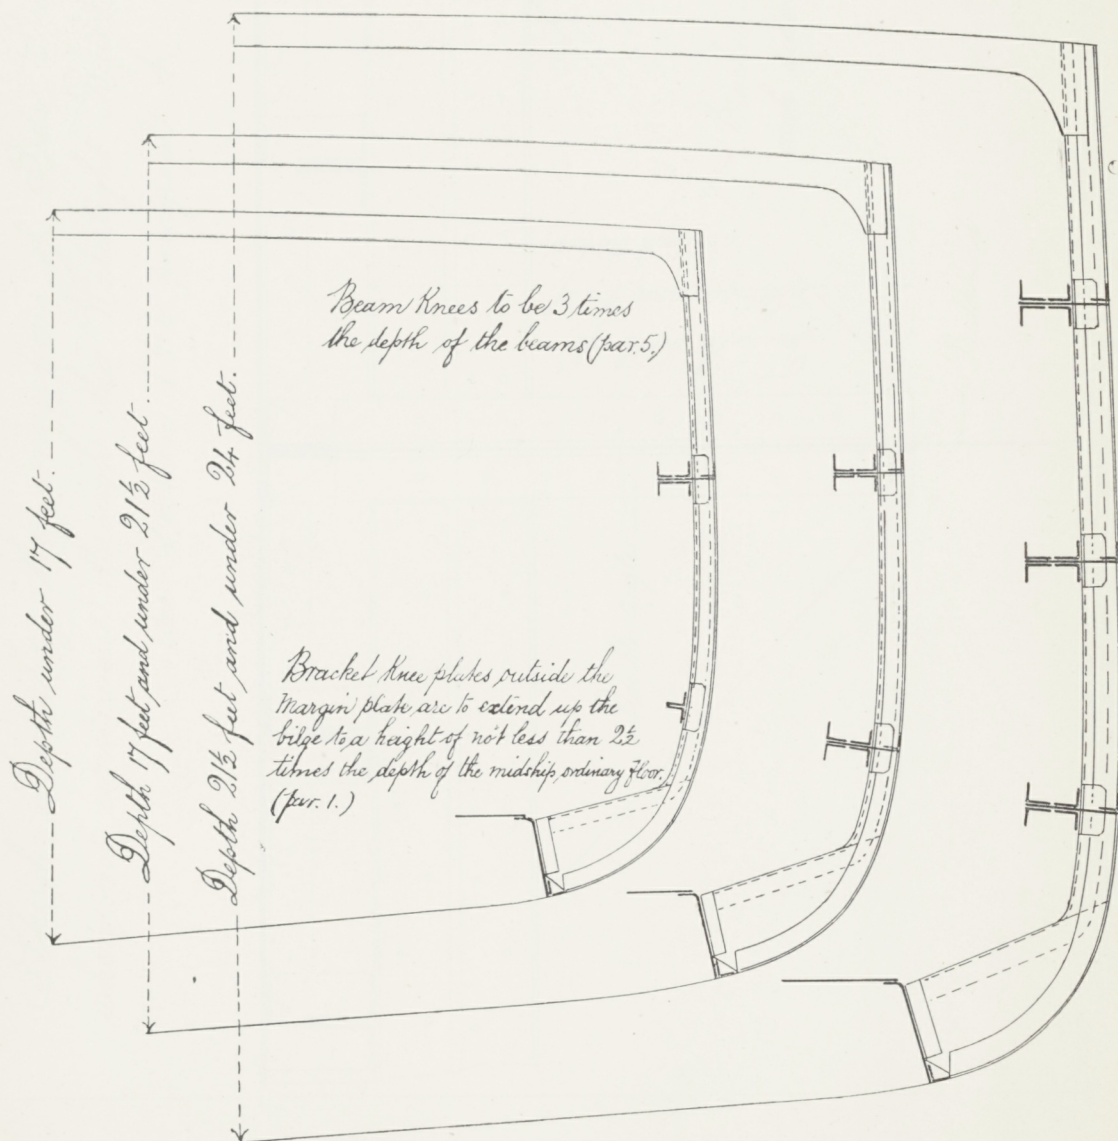 Depth under 17 feet.
Depth 17 feet and under 21½ feet
Depth 21½ feet and under 24 feet.
Beam Knees to be 3 times
the depth of the beams (par. 5.)
Bracket Knee plates outside the
Margin plate are to extend up the
bilge to a height of not less than 2½
times the depth of the midship ordinary floor.
(par. 1.)